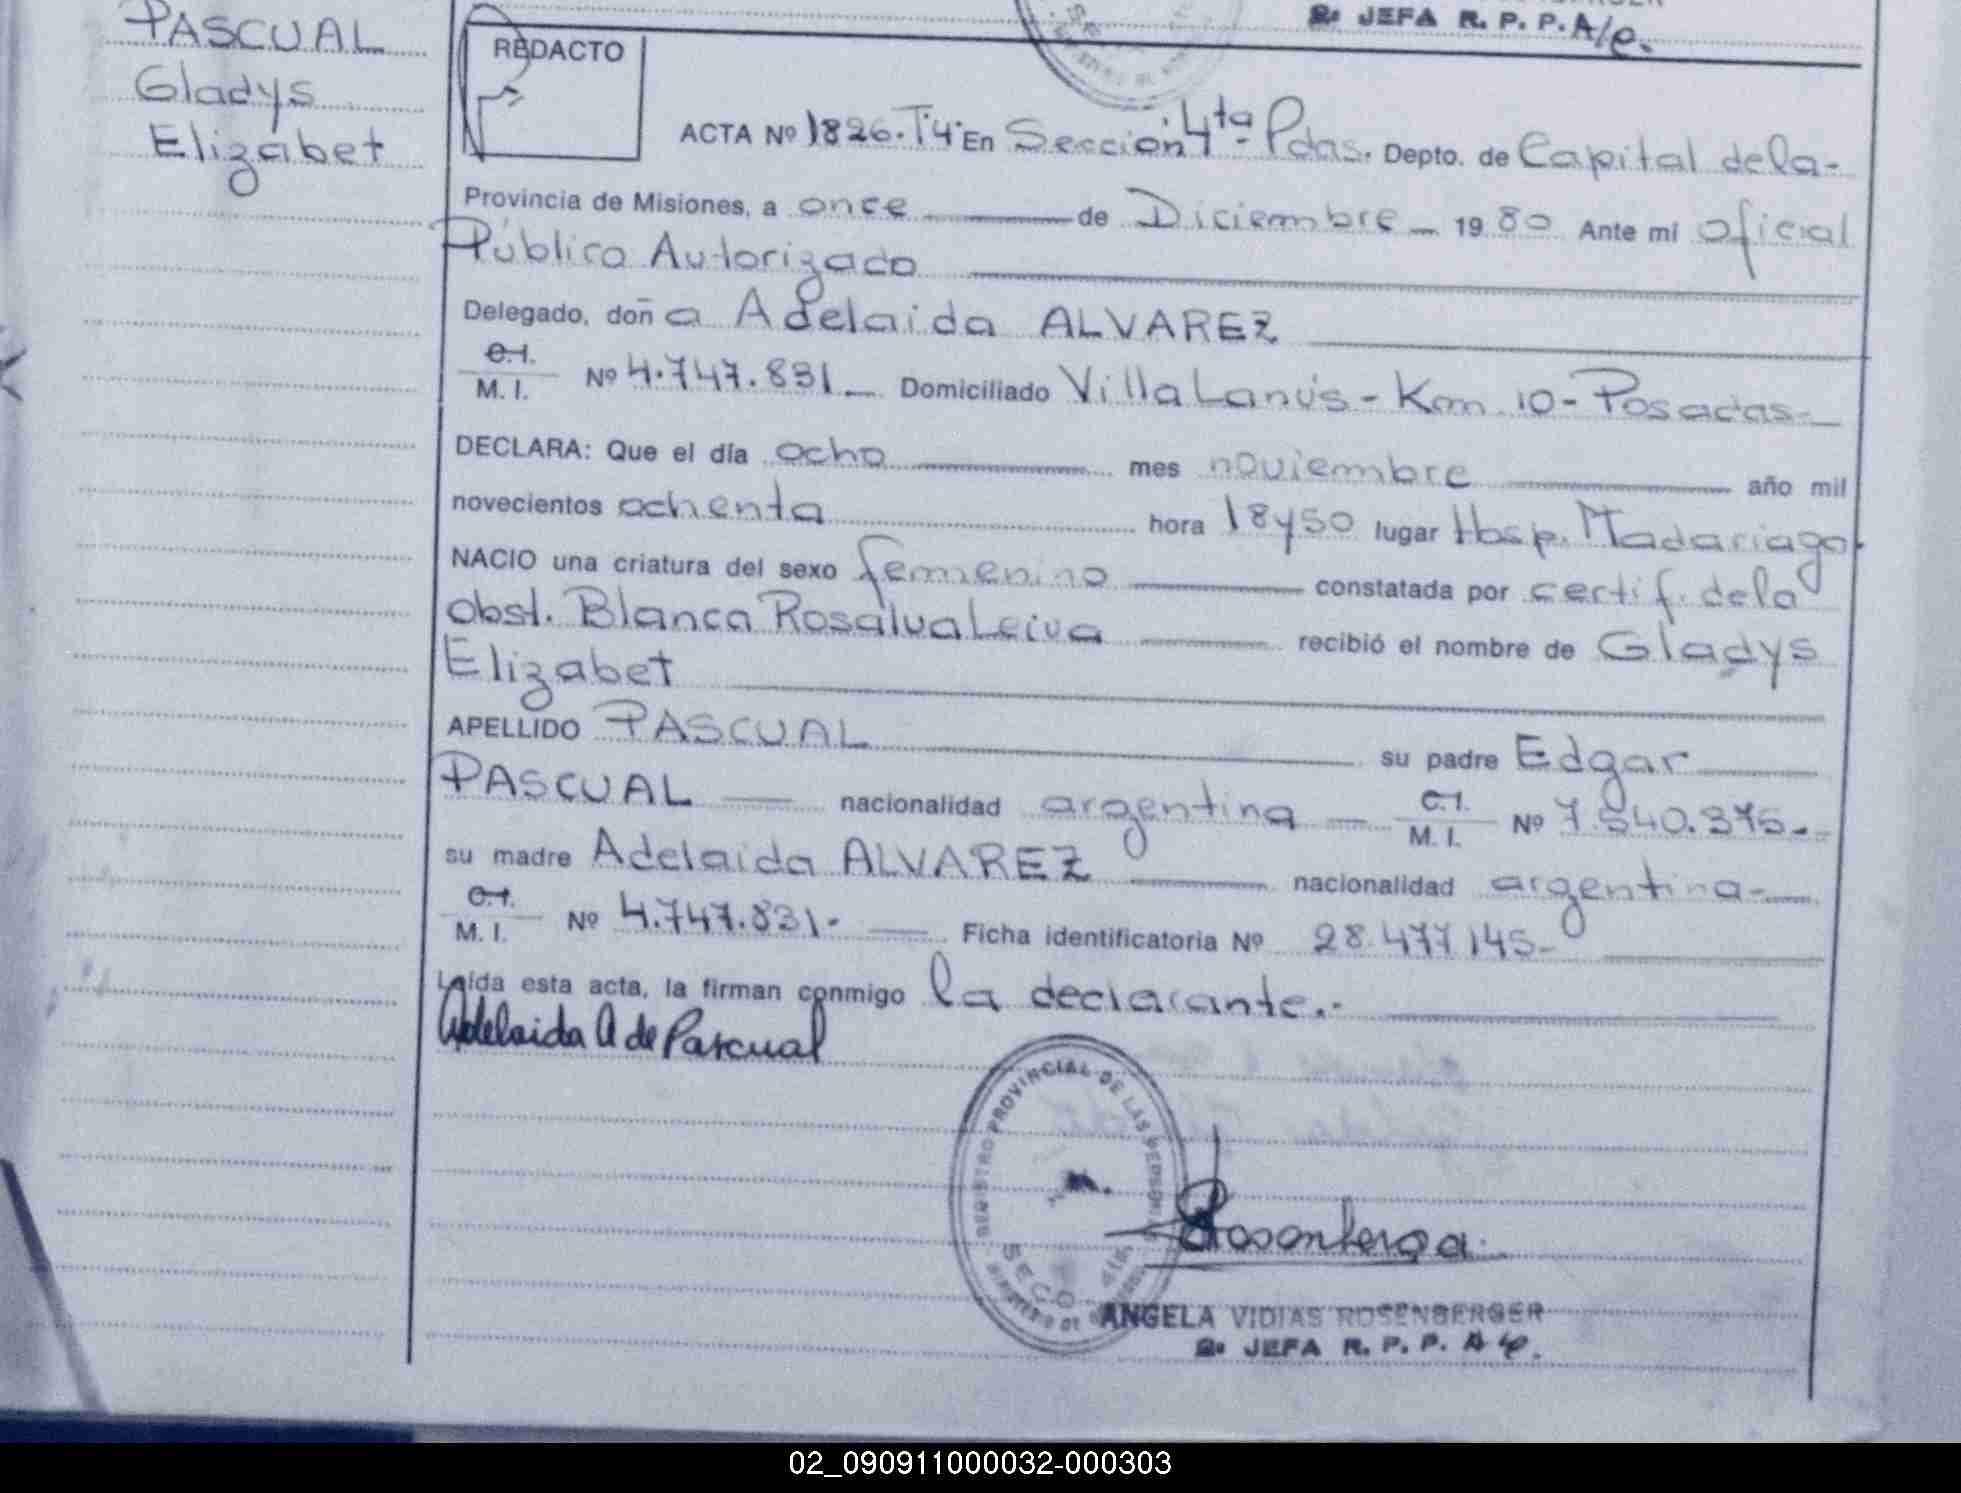 PASCUAL
Gladys
Elizabet
2a JEFA R. P. P. A/c.
REDACTO
ACTA Nº 1826. Tº4º En Sección 4ta. Pdas. Depto. de Capital dela-
Provincia de Misiones, a once de Diciembre 19 80 Ante mi oficial
Público Autorizado
Delegado, doña Adelaida ALVAREZ
C.I.
M. I. Nº 4.747.831 Domiciliado Villa Lanús - Km 10 - Posadas-
DECLARA: Que el día ocho mes noviembre año mil
novecientos ochenta hora 18y50 lugar Hosp. Madariaga.
NACIO una criatura del sexo femenino constatada por certif. dela
obst. Blanca Rosalva Leiva recibió el nombre de Gladys
Elizabet
APELLIDO PASCUAL su padre Edgar
PASCUAL nacionalidad argentina C.I. M. I. Nº 7.540.375.-
su madre Adelaida ALVAREZ nacionalidad argentina-
C.I.
M. I. Nº 4.747.831- Ficha identificatoria Nº 28.477.145-
Leída esta acta, la firman conmigo la declarante.-
Adelaida A de Pascual
REGISTRO PROVINCIAL DE LAS PERSONAS
SECC. 4ta
MINISTERIO DE GOBIERNO
ANGELA VIDIAS ROSENBERGER
2a JEFA R. P. P. A/c.
02_090911000032-000303